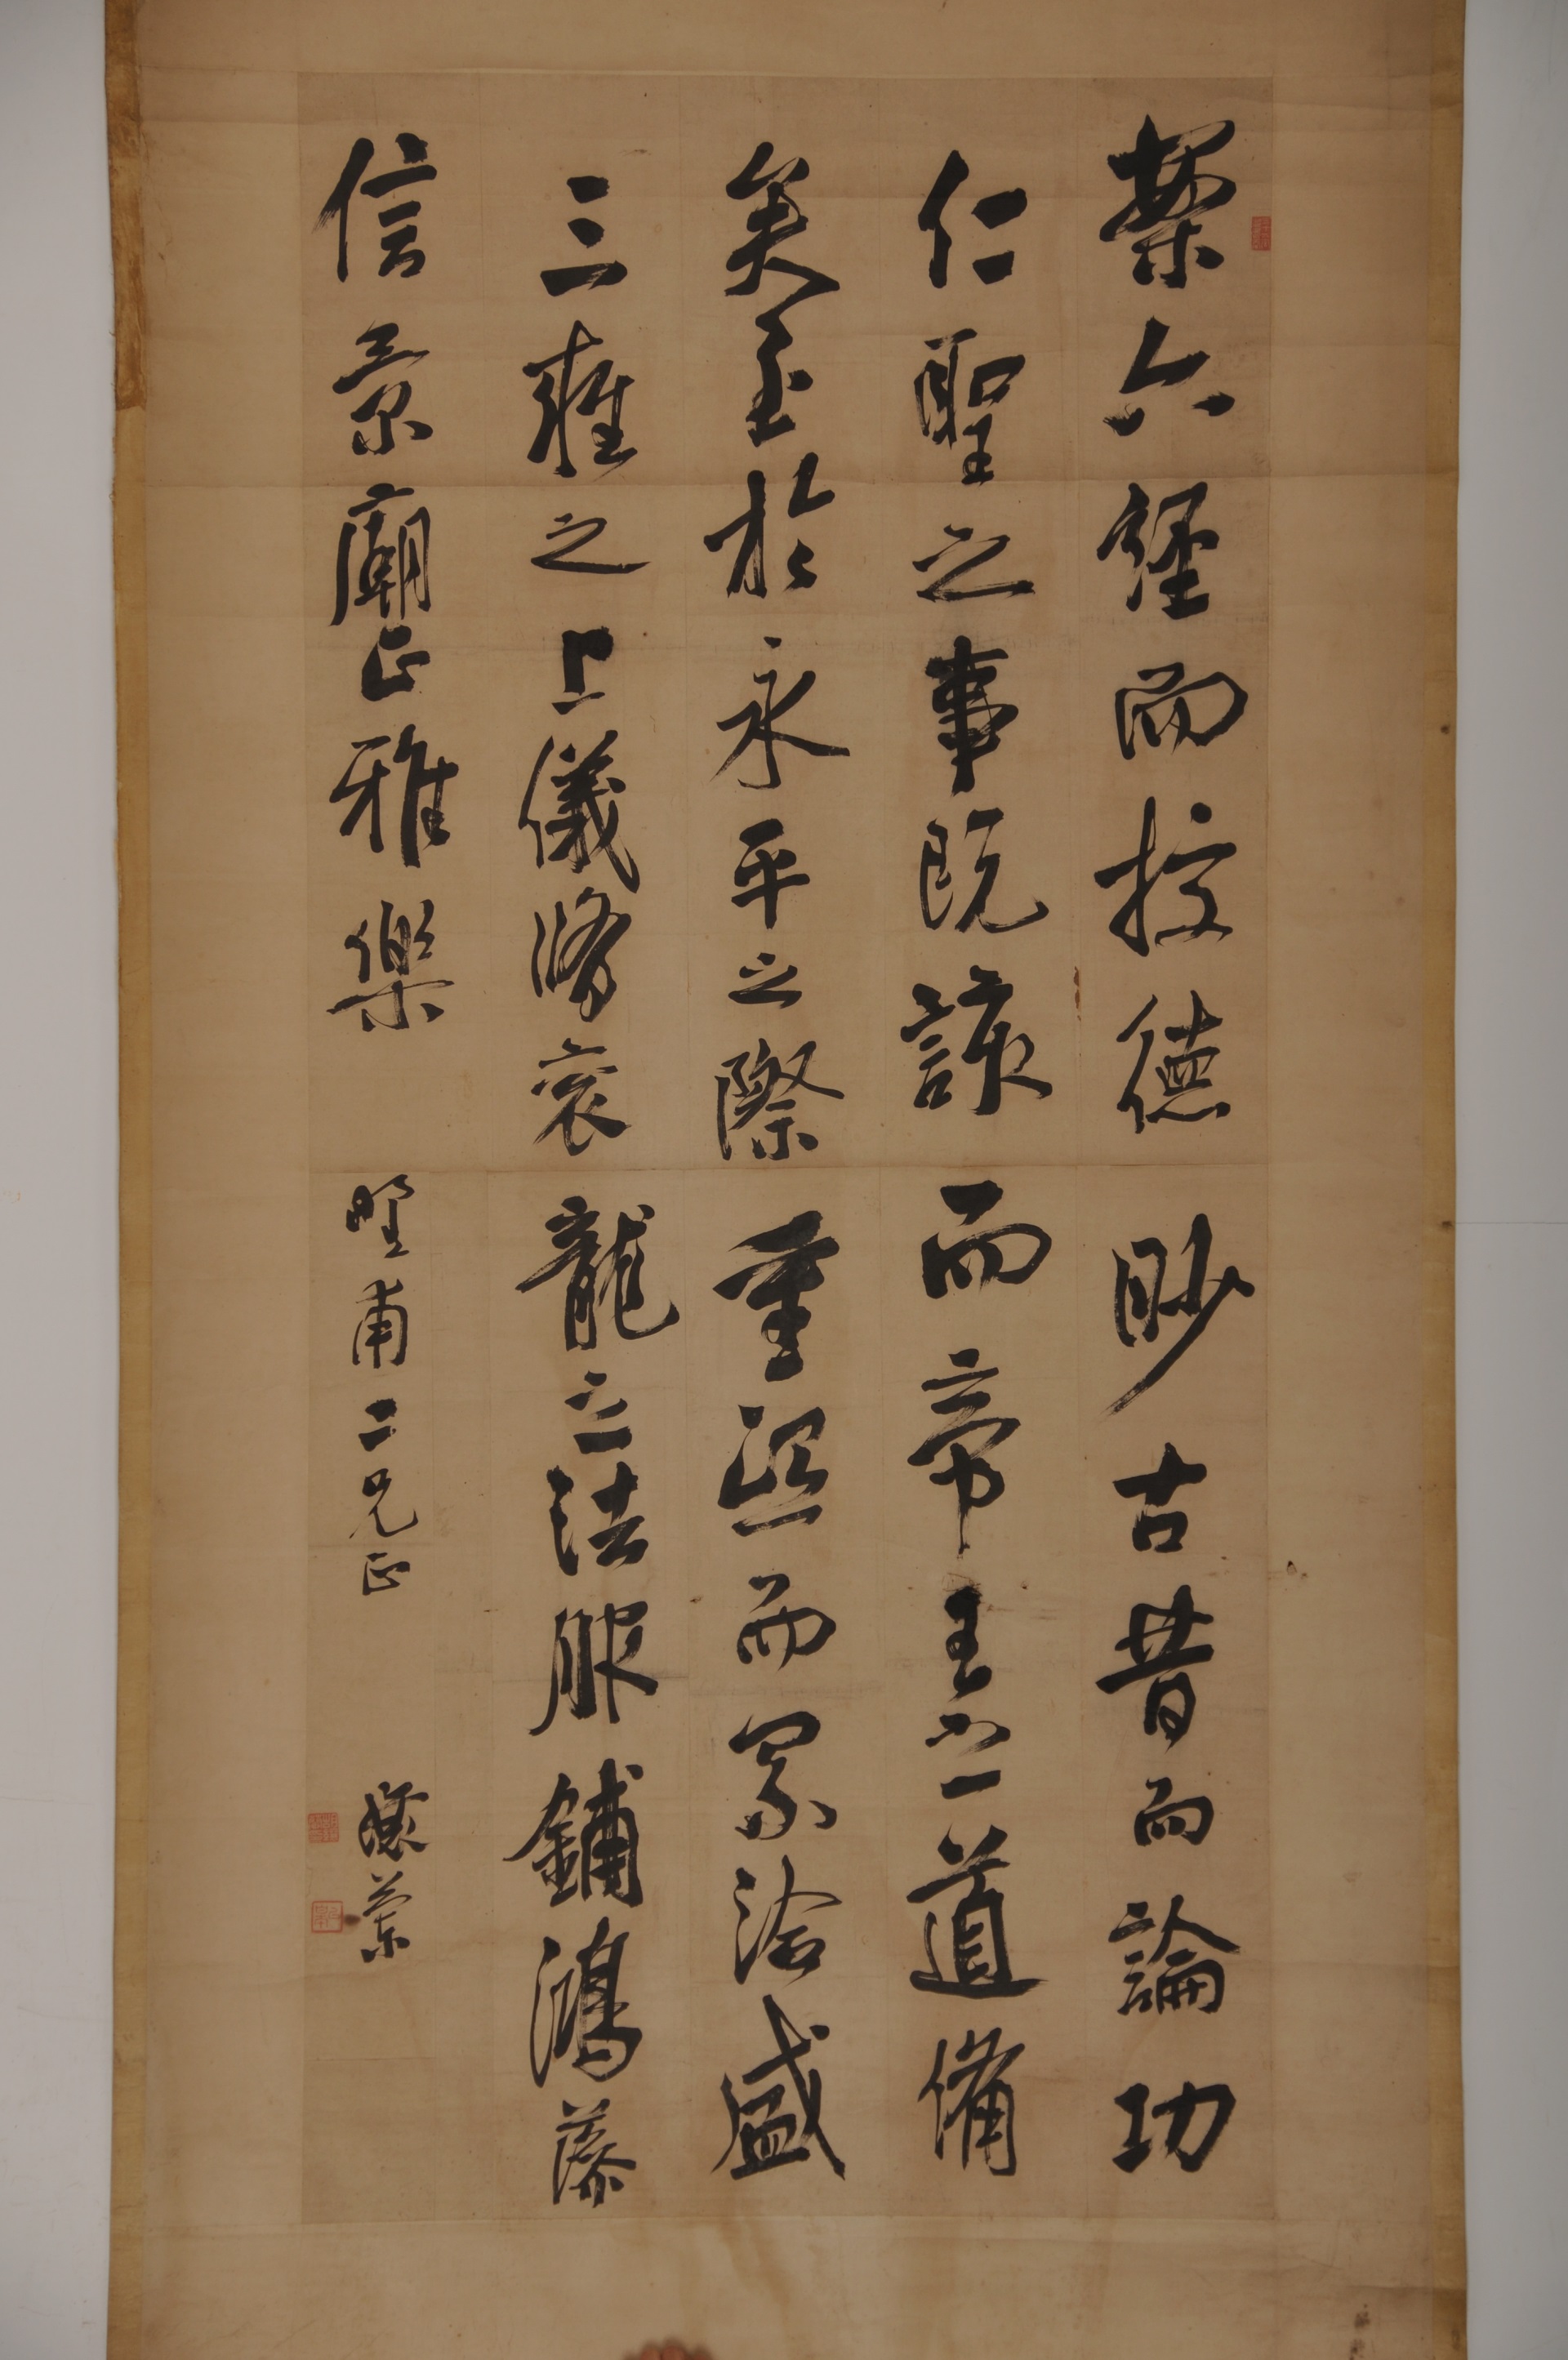 案六經而校德眇古昔而論功
仁聖之事既該而帝王之道備
矣至於永平之際重熙而累洽盛
三雍之上儀脩袞龍之法服鋪鴻藻
信景廟正雅樂
甫二兄正